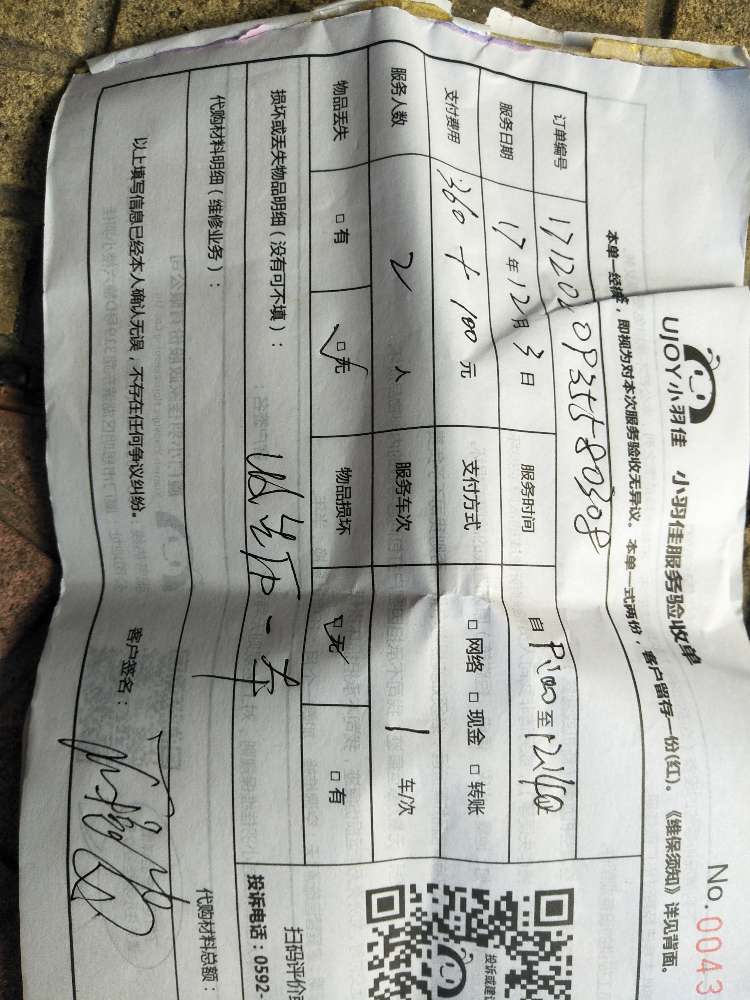 UJOY小羽佳 小羽佳服务验收单
No.0043
本单一经填, 即视为对本次服务验收无异议。本单一式两份, 客户留存一份(红)。《维保须知》详见背面。
订单编号
服务日期 17年12月3日 服务时间 自 至
支付费用 360+100元 支付方式 □网络 □现金 □转账
服务人数 2人 服务车次 1车/次
物品丢失 □有 □无 物品损坏 □无 □有
损坏或丢失物品明细(没有可不填):
代购材料明细(维修业务): 代购材料总额:
以上填写信息已经本人确认无误, 不存在任何争议纠纷。 客户签名:
投诉或建
扫码评价
投诉电话:0592-